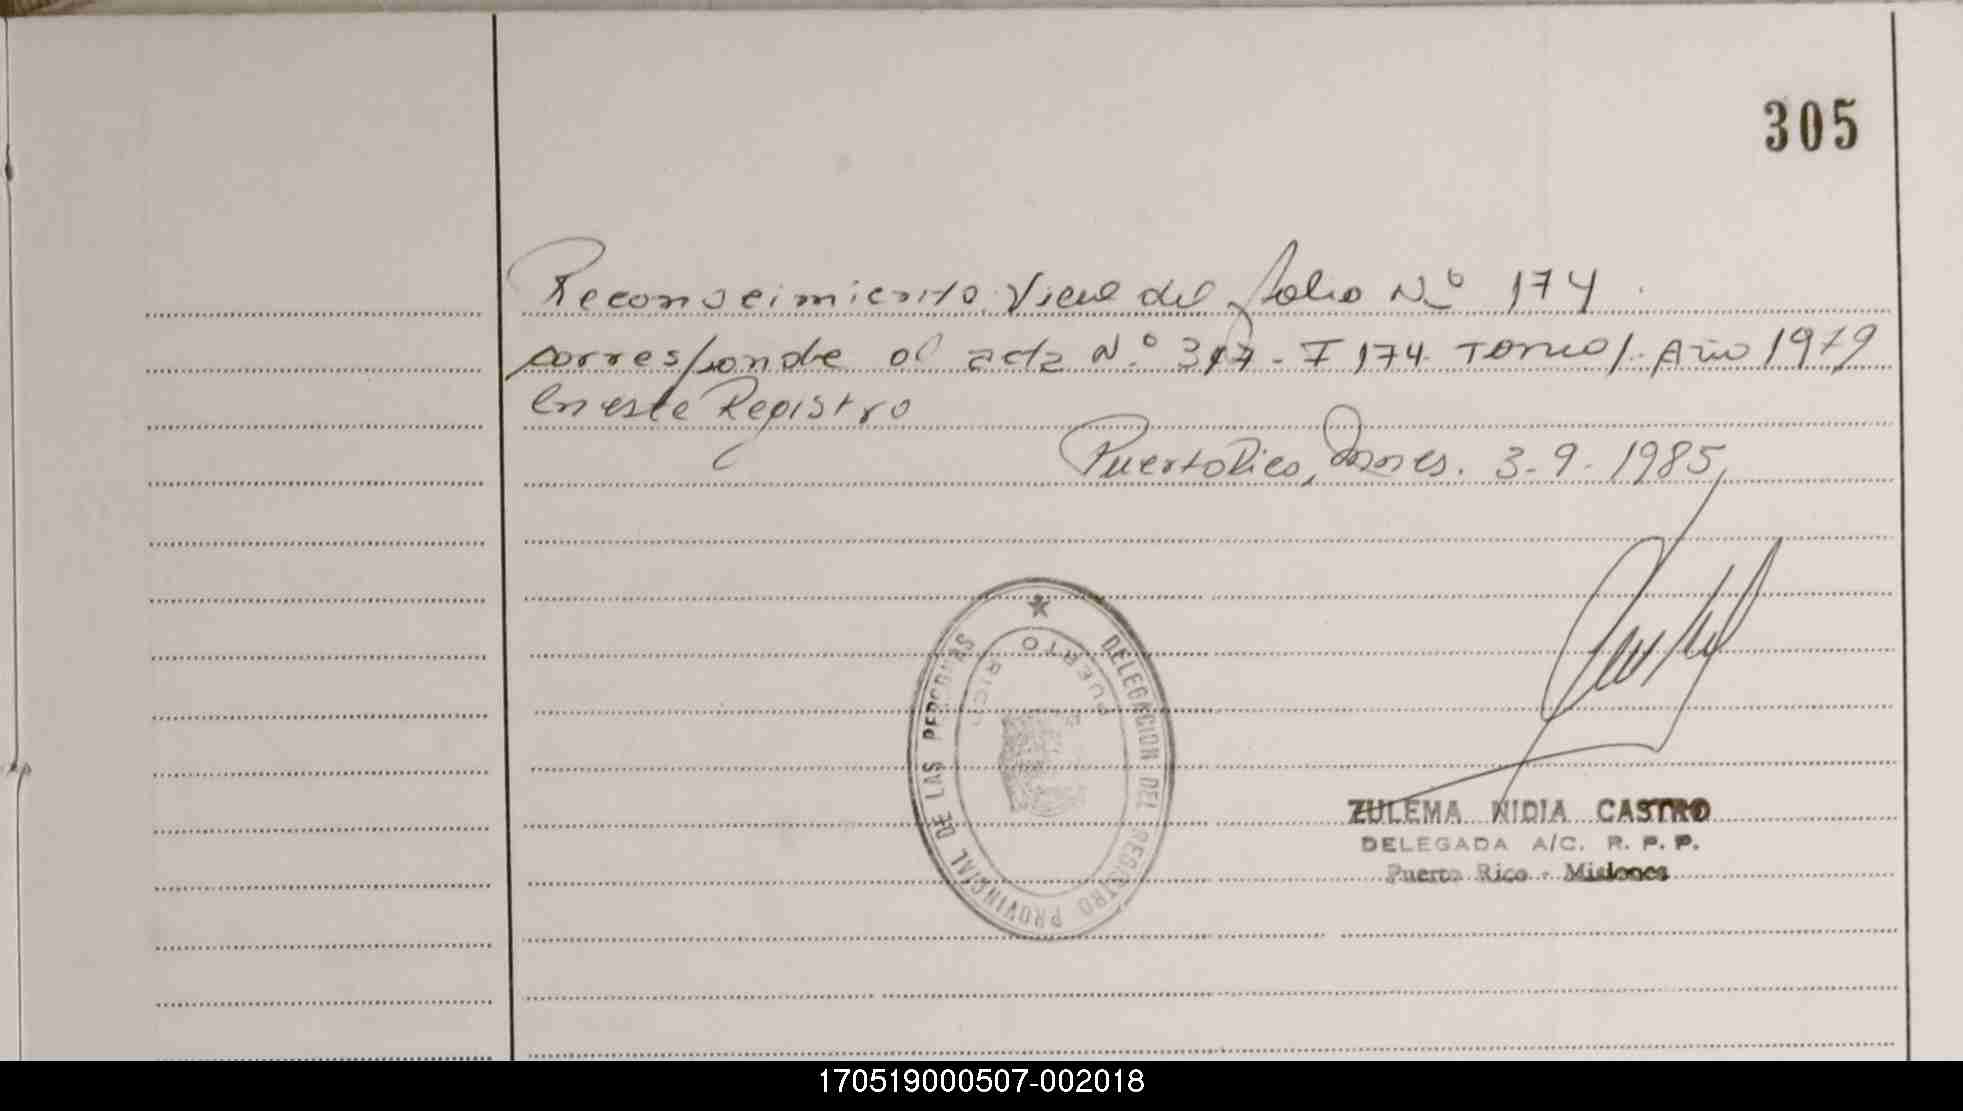 305
Reconocimiento. Viene del folio Nº 174.
corresponde al acta N.º 317 - F 174. Tomo 1. Año 1979
En este Registro
Puerto Rico, Mnes. 3-9-1985,
DELEGACION DEL REGISTRO PROVINCIAL DE LAS PERSONAS
PUERTO RICO
ZULEMA NIDIA CASTRO
DELEGADA A/C. R. P. P.
Puerto Rico - Misiones
170519000507-002018